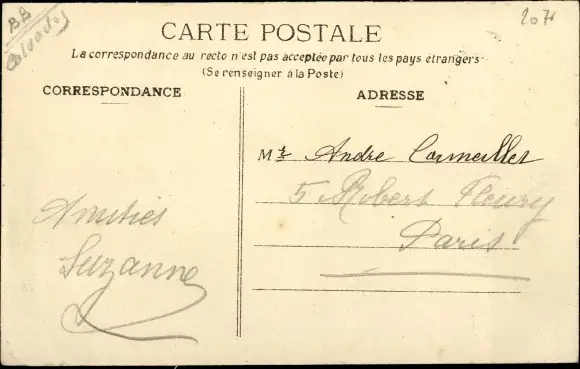 BB
Calvados
207
CARTE POSTALE
La correspondance au recto n'est pas acceptée par tous les pays étrangers
(Se renseigner à la Poste)
CORRESPONDANCE
ADRESSE
Mr Andre Cormeilles
5 R Robert Fleury
Paris
Amitiés
Suzanne